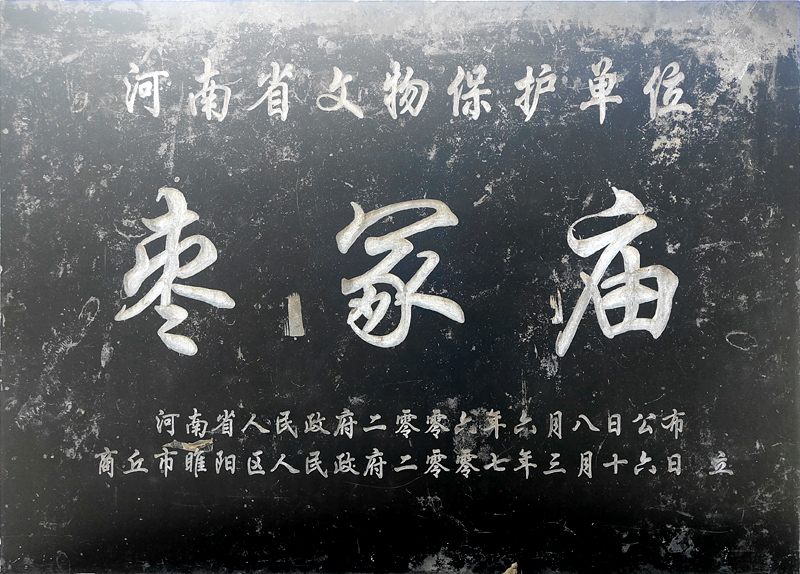 河南省文物保护单位
枣冢庙
河南省人民政府二零零六年六月八日公布
商丘市睢阳区人民政府二零零七年三月十六日 立